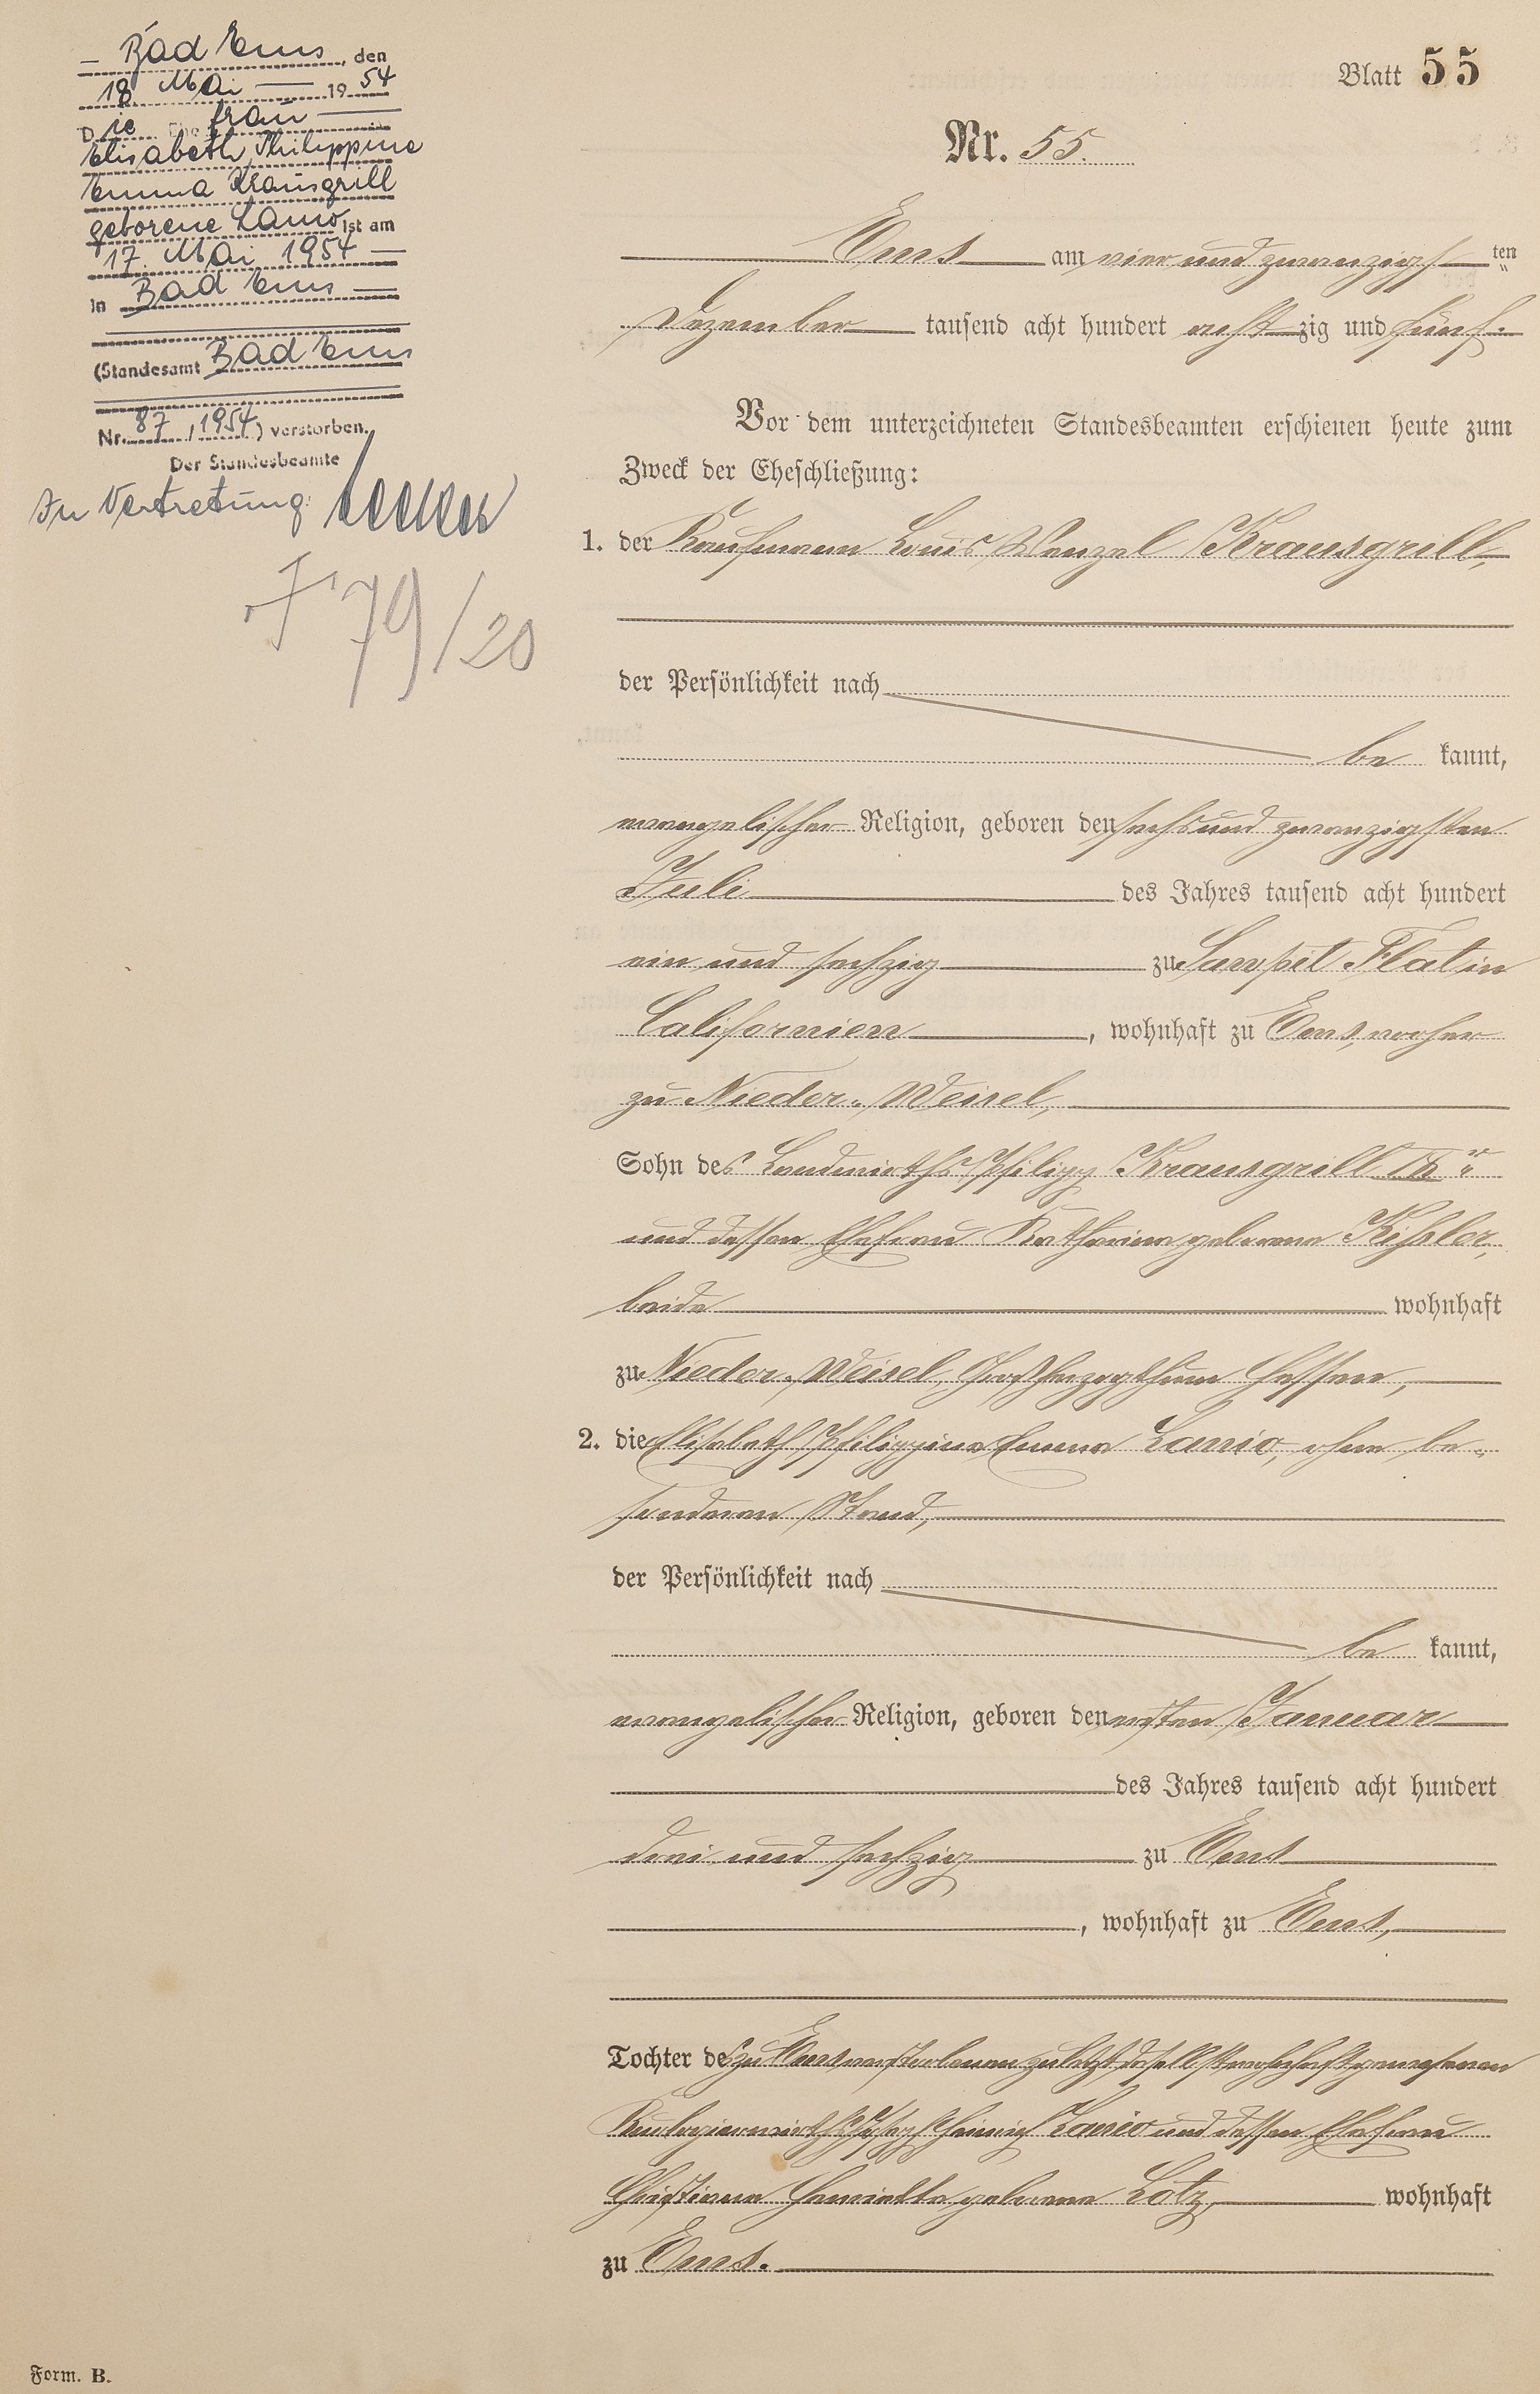 – Bad Ems, den
18. Mai — 1954
Die Ehefrau —
Elisabeth Philippine
Emma Krausgrill
geborene Lanio ist am
17. Mai 1954 —
in Bad Ems —
(Standesamt Bad Ems
Nr. 87/1954) verstorben.
Der Standesbeamte
In Vertretung:
79/20
Blatt 55
Nr. 55.
Ems am vier und zwanzigsten
Dezember tausend acht hundert achtzig und fünf.
Vor dem unterzeichneten Standesbeamten erschienen heute zum
Zweck der Eheschließung:
1. der Kaufmann Louis Wenzel Krausgrill,
der Persönlichkeit nach
be kannt,
evangelischer Religion, geboren den sechs und zwanzigsten
Juli des Jahres tausend acht hundert
ein und sechzig zu Sawpit Flat in
Californien, wohnhaft zu Ems, vorher
zu Nieder-Weisel,
Sohn des Landwirths Philipp Krausgrill
und dessen Ehefrau Katharina geborene Kißler,
beide wohnhaft
zu Nieder-Weisel, Großherzogthum Hessen,
2. die Elisabeth Philippine Emma Lanio, ohne be-
sonderen Stand,
der Persönlichkeit nach
be kannt,
evangelischer Religion, geboren den ersten Januar
des Jahres tausend acht hundert
drei und sechzig zu Ems
, wohnhaft zu Ems,
Tochter des zu Ems verstorbenen zuletzt daselbst wohnhaft gewesenen
Kurlogierwirths Joseph Heinrich Lanio und dessen Ehefrau
Christiane Henriette geborene Lotz, wohnhaft
zu Ems.
Form. B.